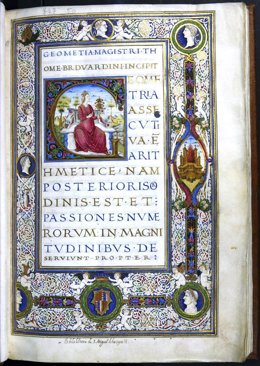 GEOMETIA MAGISTRI TH
OME BRDVARDINI INCIPIT
GEOME
TRIA
ASSE
CVTI
VA·E
ARIT
HMETICE·NAM
POSTERIORIS O
DINIS EST·ET·
PASSIONES NVM
RORVM·IN MAGNI
TVDINIBVS·DE
SERVIVNT·PROPTER·